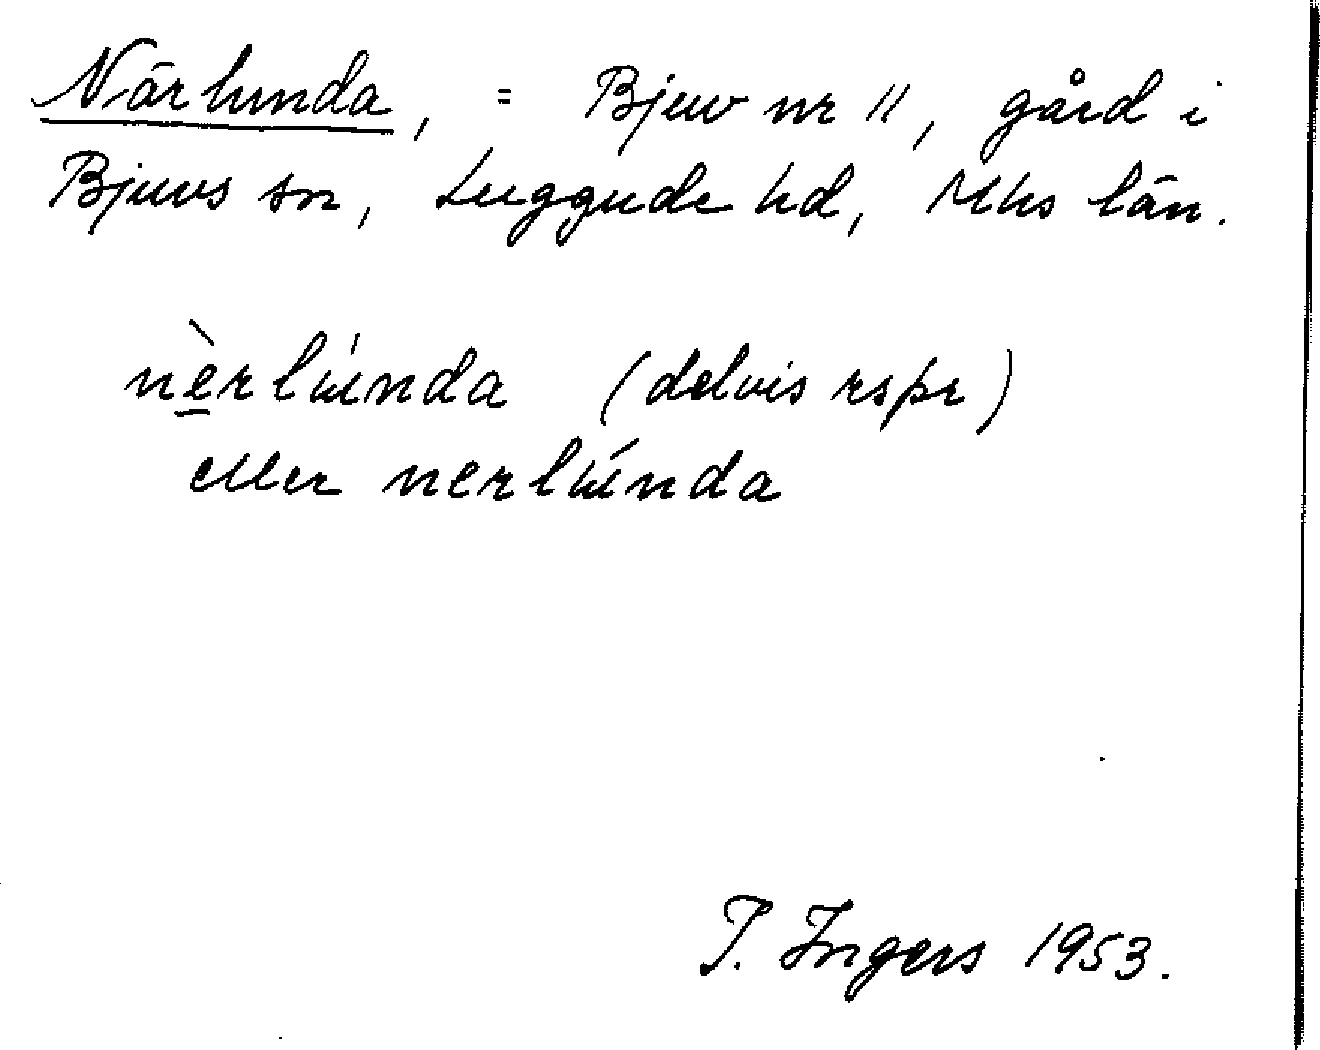 Närlunda, = Bjuv nr 11, gård i
Bjuvs sn, Luggude hd, Mhs län.
nèrlúnda (delvis rspr)
eller nerlúnda
I. Ingers 1953.